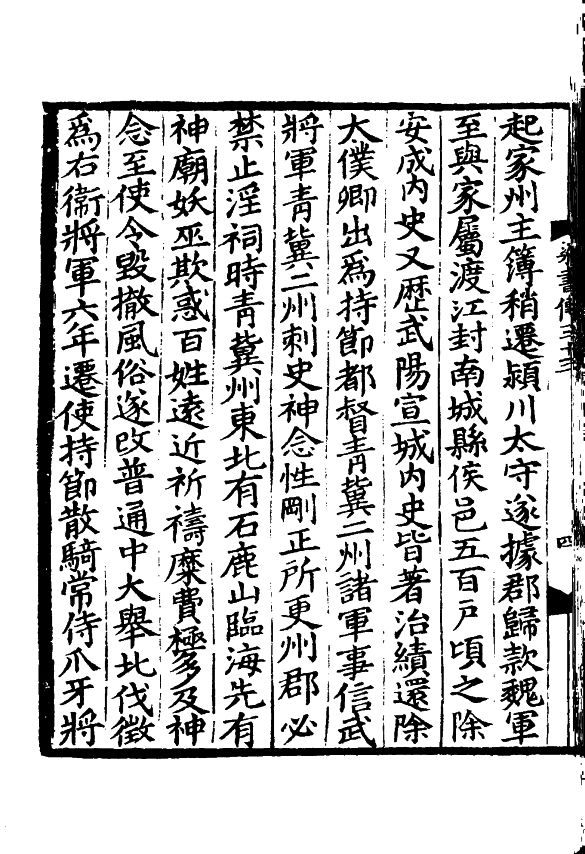 起家州主簿稍遷潁川太守遂據郡歸款魏軍
至與家屬渡江封南城縣侯邑五百户頃之除
安成内史又歷武陽宣城内史皆著治績還除
太僕卿出爲持節都督青冀二州諸軍事信武
將軍青冀二州刺史神念性剛正所更州郡必
禁止淫祠時青冀州東北有石鹿山臨海先有
神廟妖巫欺惑百姓遠近祈禱糜費極多及神
念至使令毁撤風俗遂改普通中大舉北伐徵
爲右衞將軍六年遷使持節散騎常侍爪牙將
梁書傳三十三
四